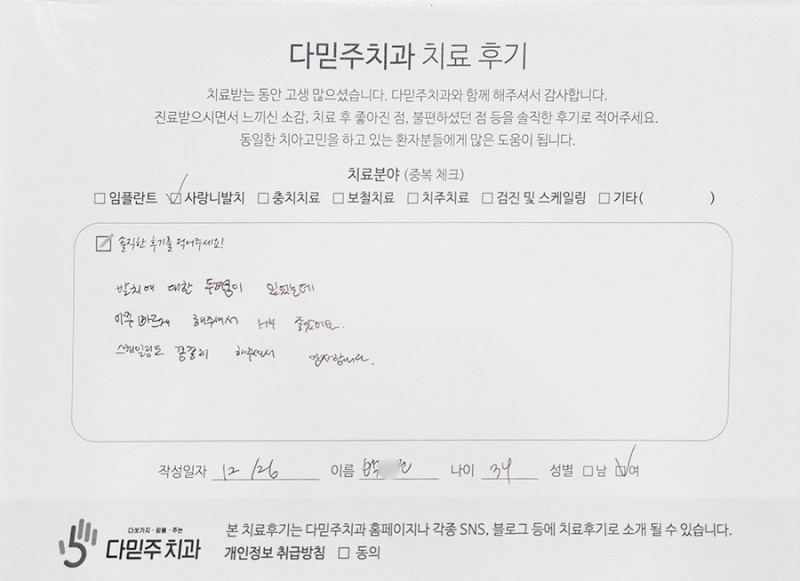 다믿주치과 치료 후기
치료받는 동안 고생 많으셨습니다. 다믿주치과와 함께 해주셔서 감사합니다.
진료받으시면서 느끼신 소감, 치료 후 좋아진 점, 불편하셨던 점 등을 솔직한 후기로 적어주세요.
동일한 치아고민을 하고 있는 환자분들에게 많은 도움이 됩니다.
치료분야 (중복 체크)
□ 임플란트 ☑ 사랑니발치 □ 충치치료 □ 보철치료 □ 치주치료 □ 검진 및 스케일링 □ 기타( )
솔직한 후기를 적어주세요!
발치에 대한 두려움이 있었는데
아주 빠르게 해주셔서 너무 좋았어요.
스케일링도 꼼꼼히 해주셔서 감사합니다.
작성일자 12/26 이름 박 나이 34 성별 □남 ☑여
다섯가지·믿음·주는
다믿주치과
본 치료후기는 다믿주치과 홈페이지나 각종 SNS, 블로그 등에 치료후기로 소개 될 수 있습니다.
개인정보 취급방침 □ 동의